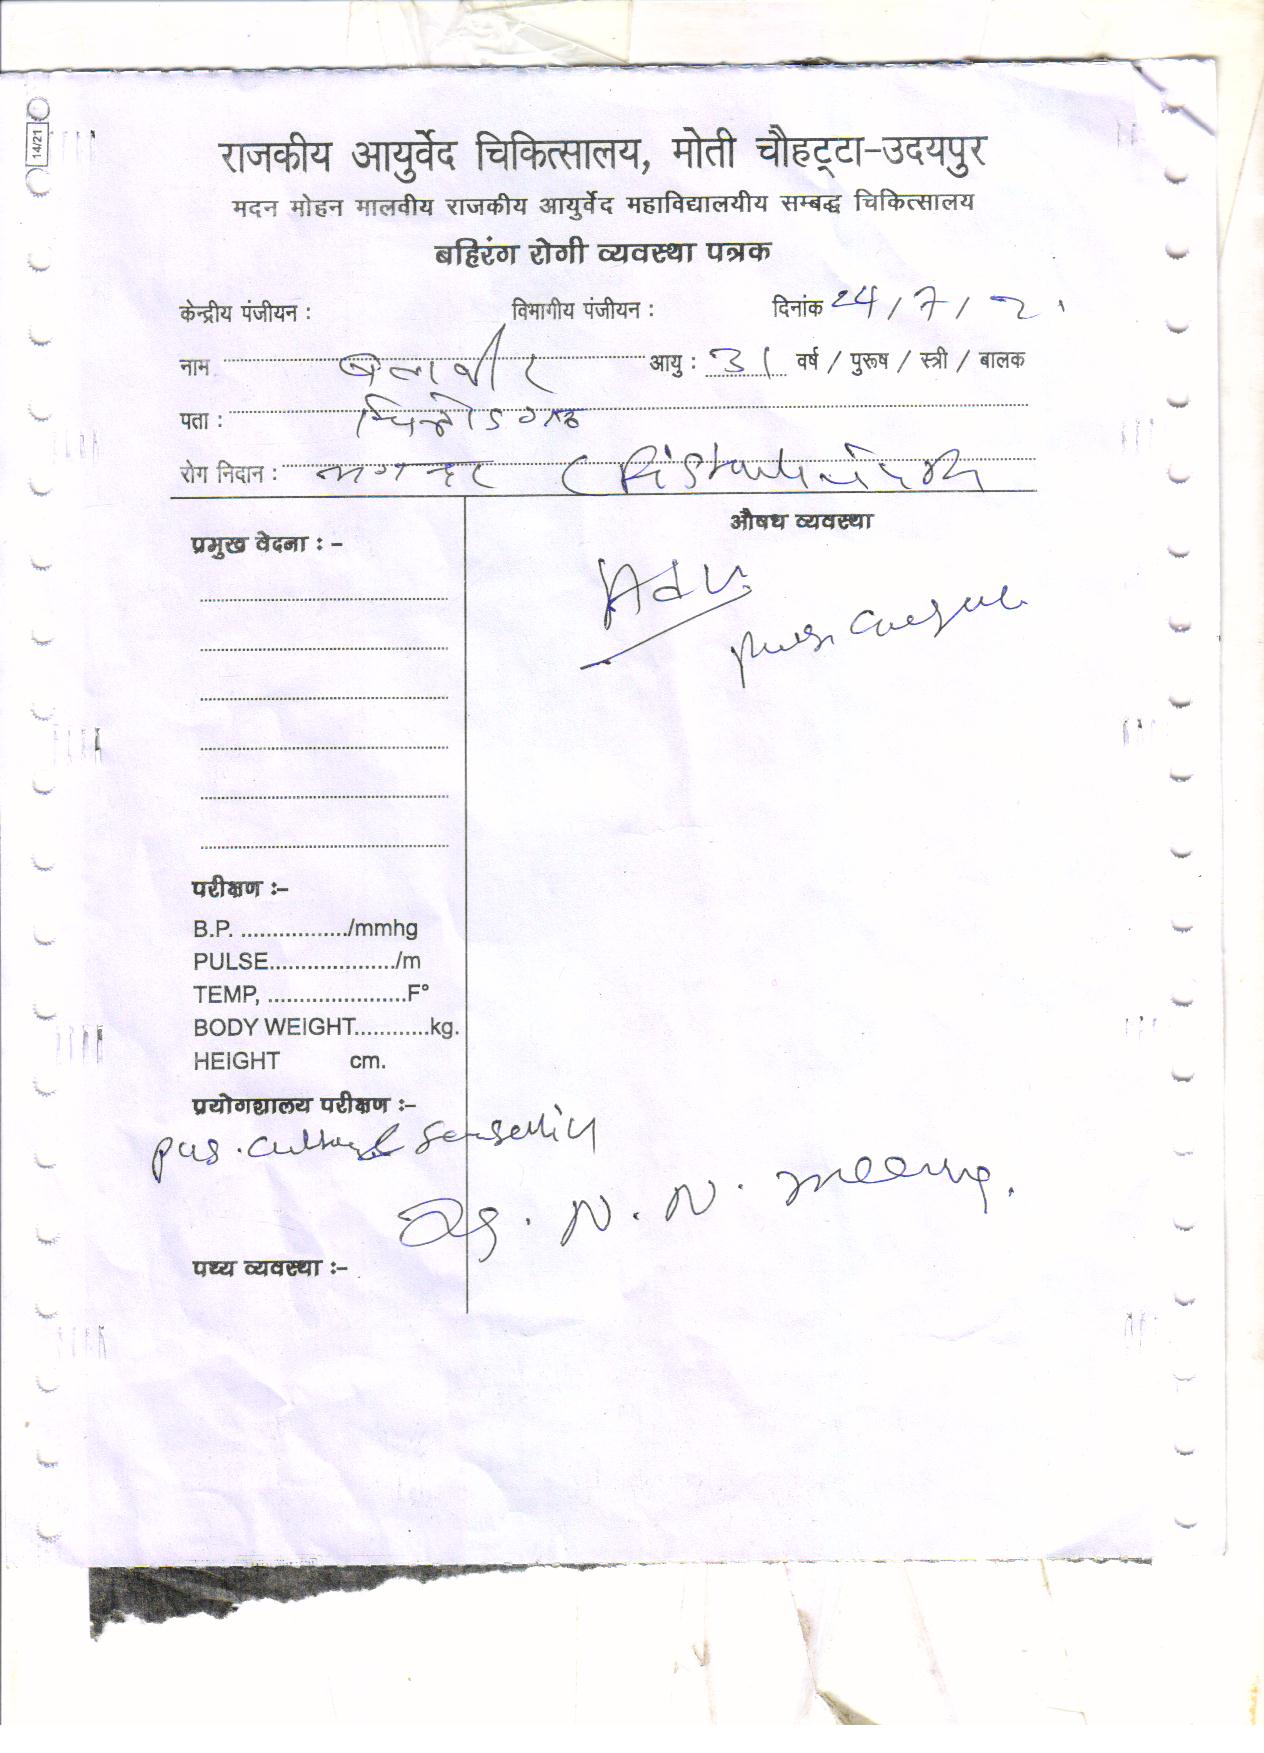 14/21
राजकीय आयुर्वेद चिकित्सालय, मोती चौहट्टा-उदयपुर
मदन मोहन मालवीय राजकीय आयुर्वेद महाविद्यालयीय सम्बद्ध चिकित्सालय
बहिरंग रोगी व्यवस्था पत्रक
केन्द्रीय पंजीयन : विभागीय पंजीयन : दिनांक 24/7/2
नाम बलवीर आयु : 31 वर्ष / पुरूष / स्त्री / बालक
पता : चित्तोडगढ
रोग निदान : भगन्दर
औषध व्यवस्था
प्रमुख वेदना : -
Adv.
परीक्षण :-
B.P. ................../mmhg
PULSE...................../m
TEMP, .......................F°
BODY WEIGHT............kg.
HEIGHT cm.
प्रयोगशालय परीक्षण :-
pus. culture
N. N.
पथ्य व्यवस्था :-